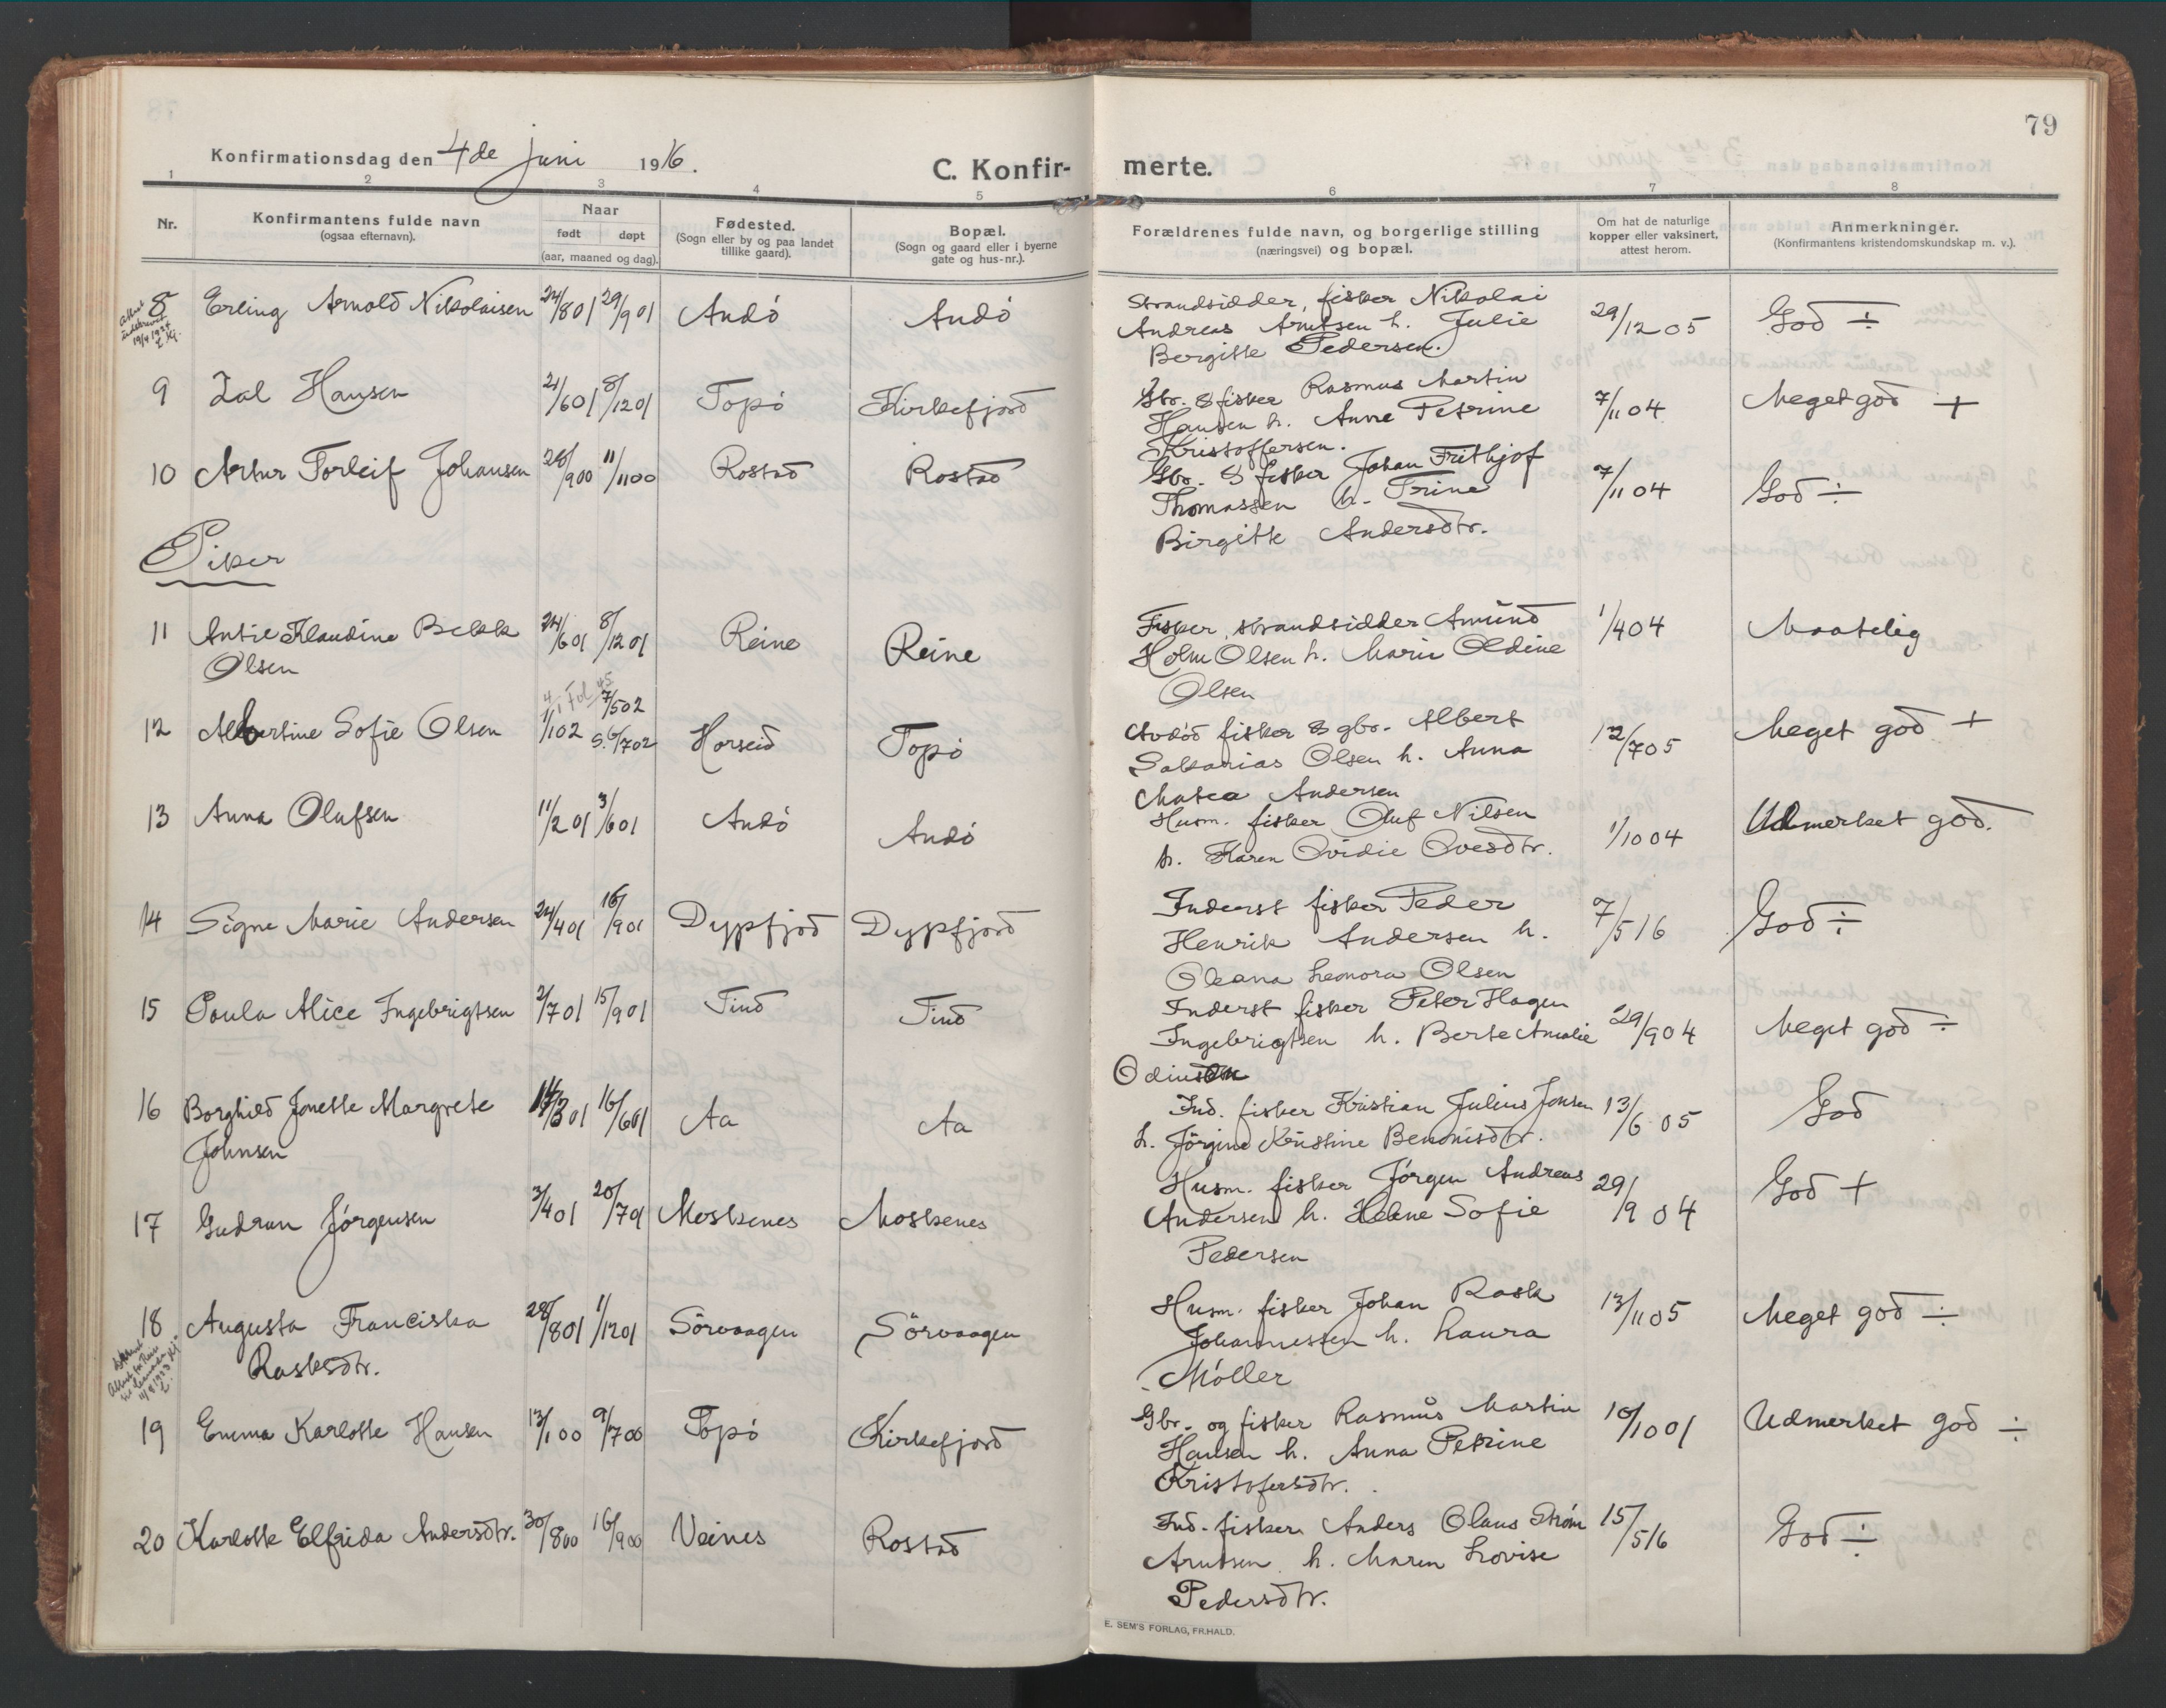 79
Konfirmationsdag den 4de juni 1916.
C. Konfir- merte.
1 2 3 4 5 6 7 8
Nr.
Konfirmantens fulde navn
(ogsaa efternavn).
Naar
født døpt
(aar, maaned og dag).
Fødested.
(Sogn eller by og paa landet
tillike gaard).
Bopæl.
(Sogn og gaard eller i byerne
gate og hus-nr.).
Forældrenes fulde navn, og borgerlige stilling
(næringsvei) og bopæl.
Om hat de naturlige
kopper eller vaksinert,
attest herom.
Anmerkninger.
(Konfirmantens kristendomskundskap m. v.).
8 Erling Arnold Nikolaisen 24/8 01 29/9 01 Andö Andö
Strandsidder, fisker Nikolai
Andreas Arntsen h. Julie
Bergitte Pedersen.
29/12 05 God ÷
9 Dal Hansen 21/6 01 8/12 01 Topö Kirkefjord
Gbr. & fisker Rasmus Martin
Hansen h. Anne Petrine
Kristoffersen.
7/11 04 Meget god +
10 Artur Torleif Johansen 28/9 00 11/11 00 Rostad Rostad
Gbr. & fisker Johan Frithjof
Thomassen h. Trine
Birgitte Andersdtr.
7/11 04 God ÷
Piker
11 Antie Klaudine Bekk
Olsen
24/6 01 8/12 01 Reine Reine
Fisker, strandsidder Amund
Holm Olsen h. Marie Oldine
Olsen
1/4 04 Maatelig
12 Albertine Sofie Olsen 1/1 02 7/5 02
S. 6/7 02 Horseid Topö
Avdöd fisker & gbr. Albert
Sakarias Olsen h. Anna
Matea Andersen
12/7 05 Meget god +
13 Anna Olufsen 11/2 01 3/6 01 Andö Andö
Husm. fisker Oluf Nilsen
h. Karen Ovidie Ovesdtr.
1/10 04 Udmerket god.
14 Signe Marie Andersen 24/4 01 16/9 01 Dypfjord Dypfjord
Inderst fisker Peder
Henrik Andersen h.
Oleana Leonora Olsen
7/5 16 God ÷
15 Paula Alice Ingebrigtsen 2/7 01 15/9 01 Tind Tind
Inderst fisker Peter Hagen
Ingebrigtsen h. Berte Amalie
Odinsen
29/9 04 Meget god ÷
16 Borghild Jonette Margrete
Johnsen
16/6 01 Aa Aa
Ind. fisker Kristian Julius Jonsen
h. Jörgine Kristine Benonisdtr.
13/6 05 God
17 Gudrun Jörgensen 3/4 01 20/7 01 Moskenes Moskenes
Husm. fisker Jörgen Andreas
Andersen h. Helene Sofie
Pedersen
29/9 04 God +
18 Augusta Franciska
Rasksdtr.
28/8 01 1/12 01 Sörvaagen Sörvaagen
Husm. fisker Johan Rask
Johannessen h. Laura
Möller
13/11 05 Meget god ÷
19 Emma Karlotte Hansen 13/1 00 9/7 00 Topö Kirkefjord
Gbr. og fisker Rasmus Martin
Hansen h. Anna Petrine
Kristofersdtr.
10/10 01 Udmerket god ÷
20 Karlotte Elfrida Andersdtr. 30/8 00 16/9 00 Veines Rostad
Ind. fisker Anders Olaus Ström
Arntsen h. Maren Lovise
Pedersdtr.
15/5 16 God ÷
E. SEM'S FORLAG, FR.HALD.